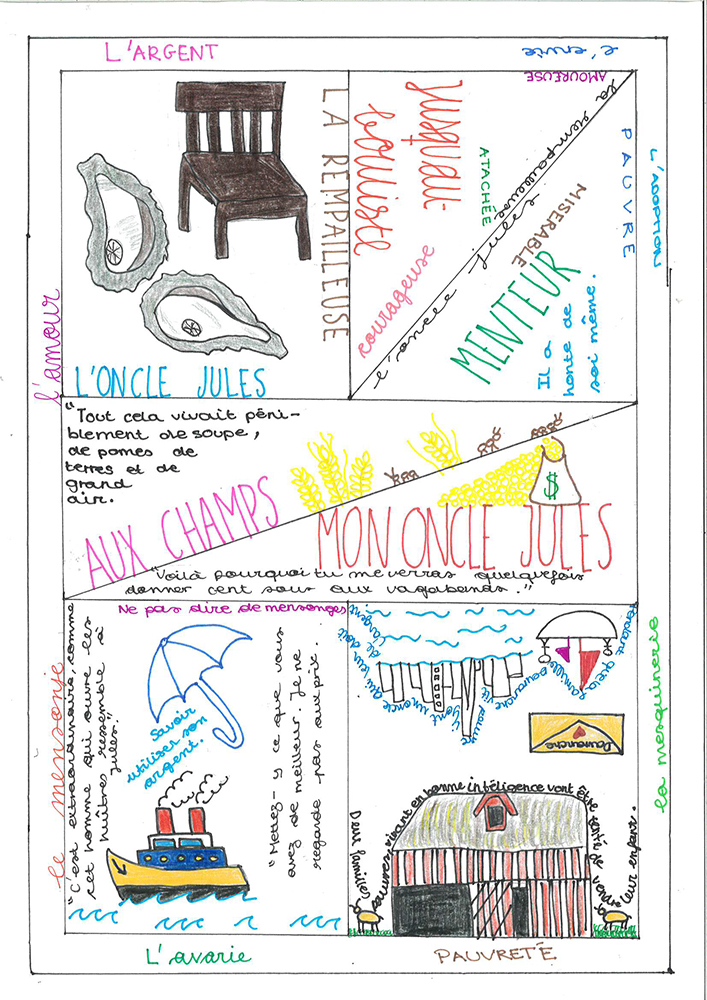 L'ARGENT
l'envie
AMOUREUSE
LA REMPAILLEUSE
Jusqu'au-
bouliste
ATACHÉE
courageuse
la rempailleuse
l'oncle Jules
PAUVRE
MISERABLE
MENTEUR
Il a
honte de
soi même.
L'ADOPTION
l'amour
L'ONCLE JULES
"Tout cela vivait péni-
blement de soupe,
de pomes de
terres et de
grand
air.
AUX CHAMPS
$
MON ONCLE JULES
"Voilà pourquoi tu me verras quelquefois
donner cent sous aux vagabonds."
Ne pas dire de mensonges
le mensonje
"C'est extraordinaire comme
cet homme qui ouvre les
huîtres ressemble à
Jules."
Savoir
utiliser son
argent.
"Mettez-y ce que vous
avez de meilleur. Je ne
regarde pas aux prix.
famille Davranche
pauvre
un oncle qui leur doit
de l'argent.
Davranche
Deux familles
pauvres vivant en bonne intéligence vont être tenté de vendre
leur enfant.
la mesquinerie
L'avarie
PAUVRETÉ